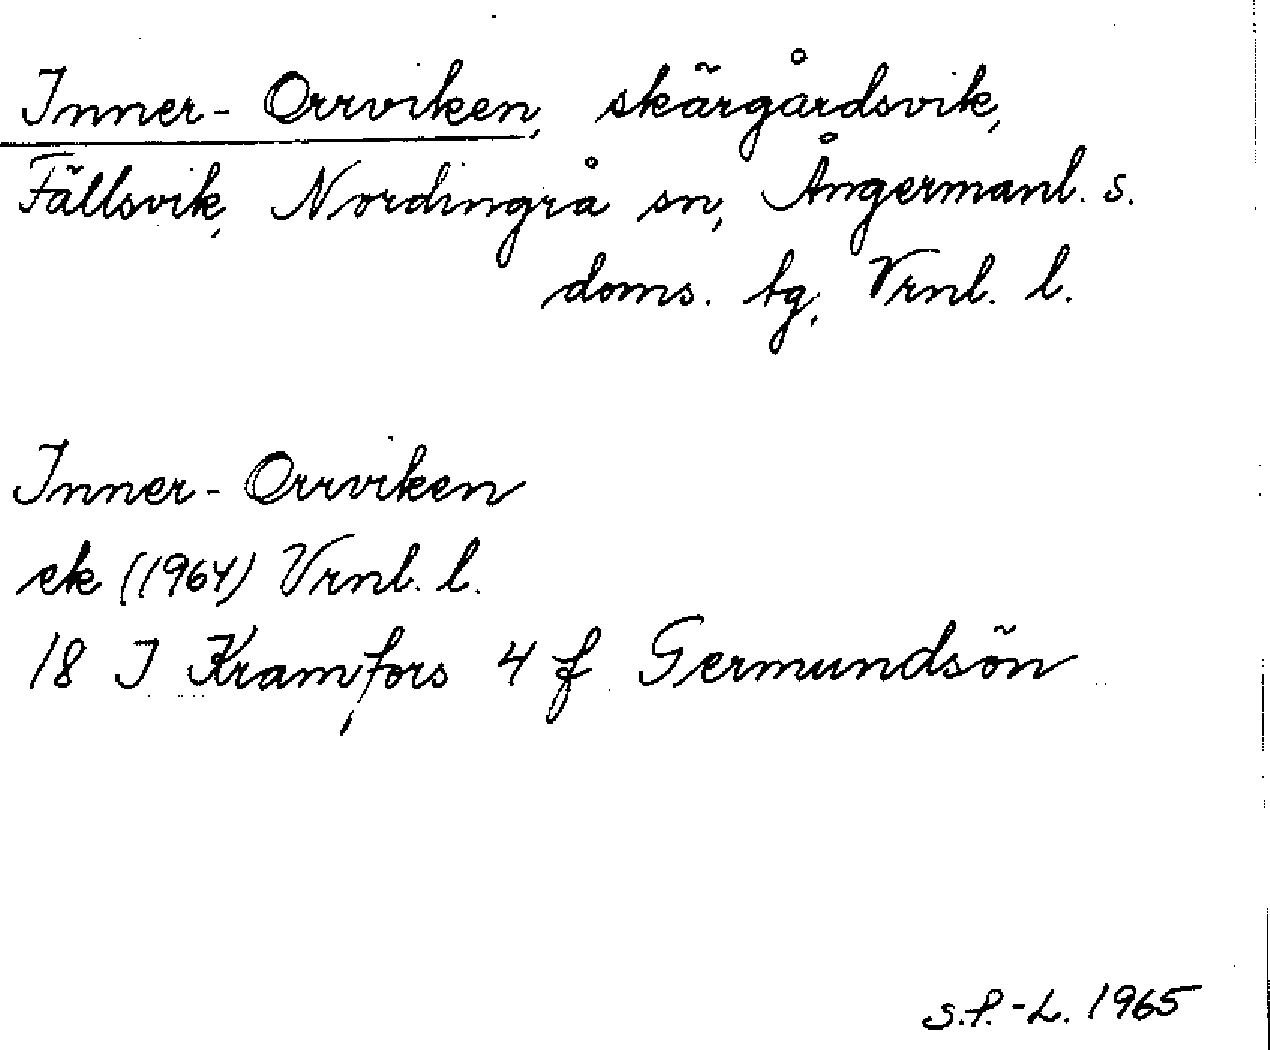 Inner-Orrviken, skärgårdsvik,
Fällsvik, Nordingrå sn, Ångermanl. s.
doms. tg, Vrnl. l.
Inner-Orrviken
ek (1964) Vrnl. l.
18 I Kramfors 4 f Germundsön
S.P.-L. 1965